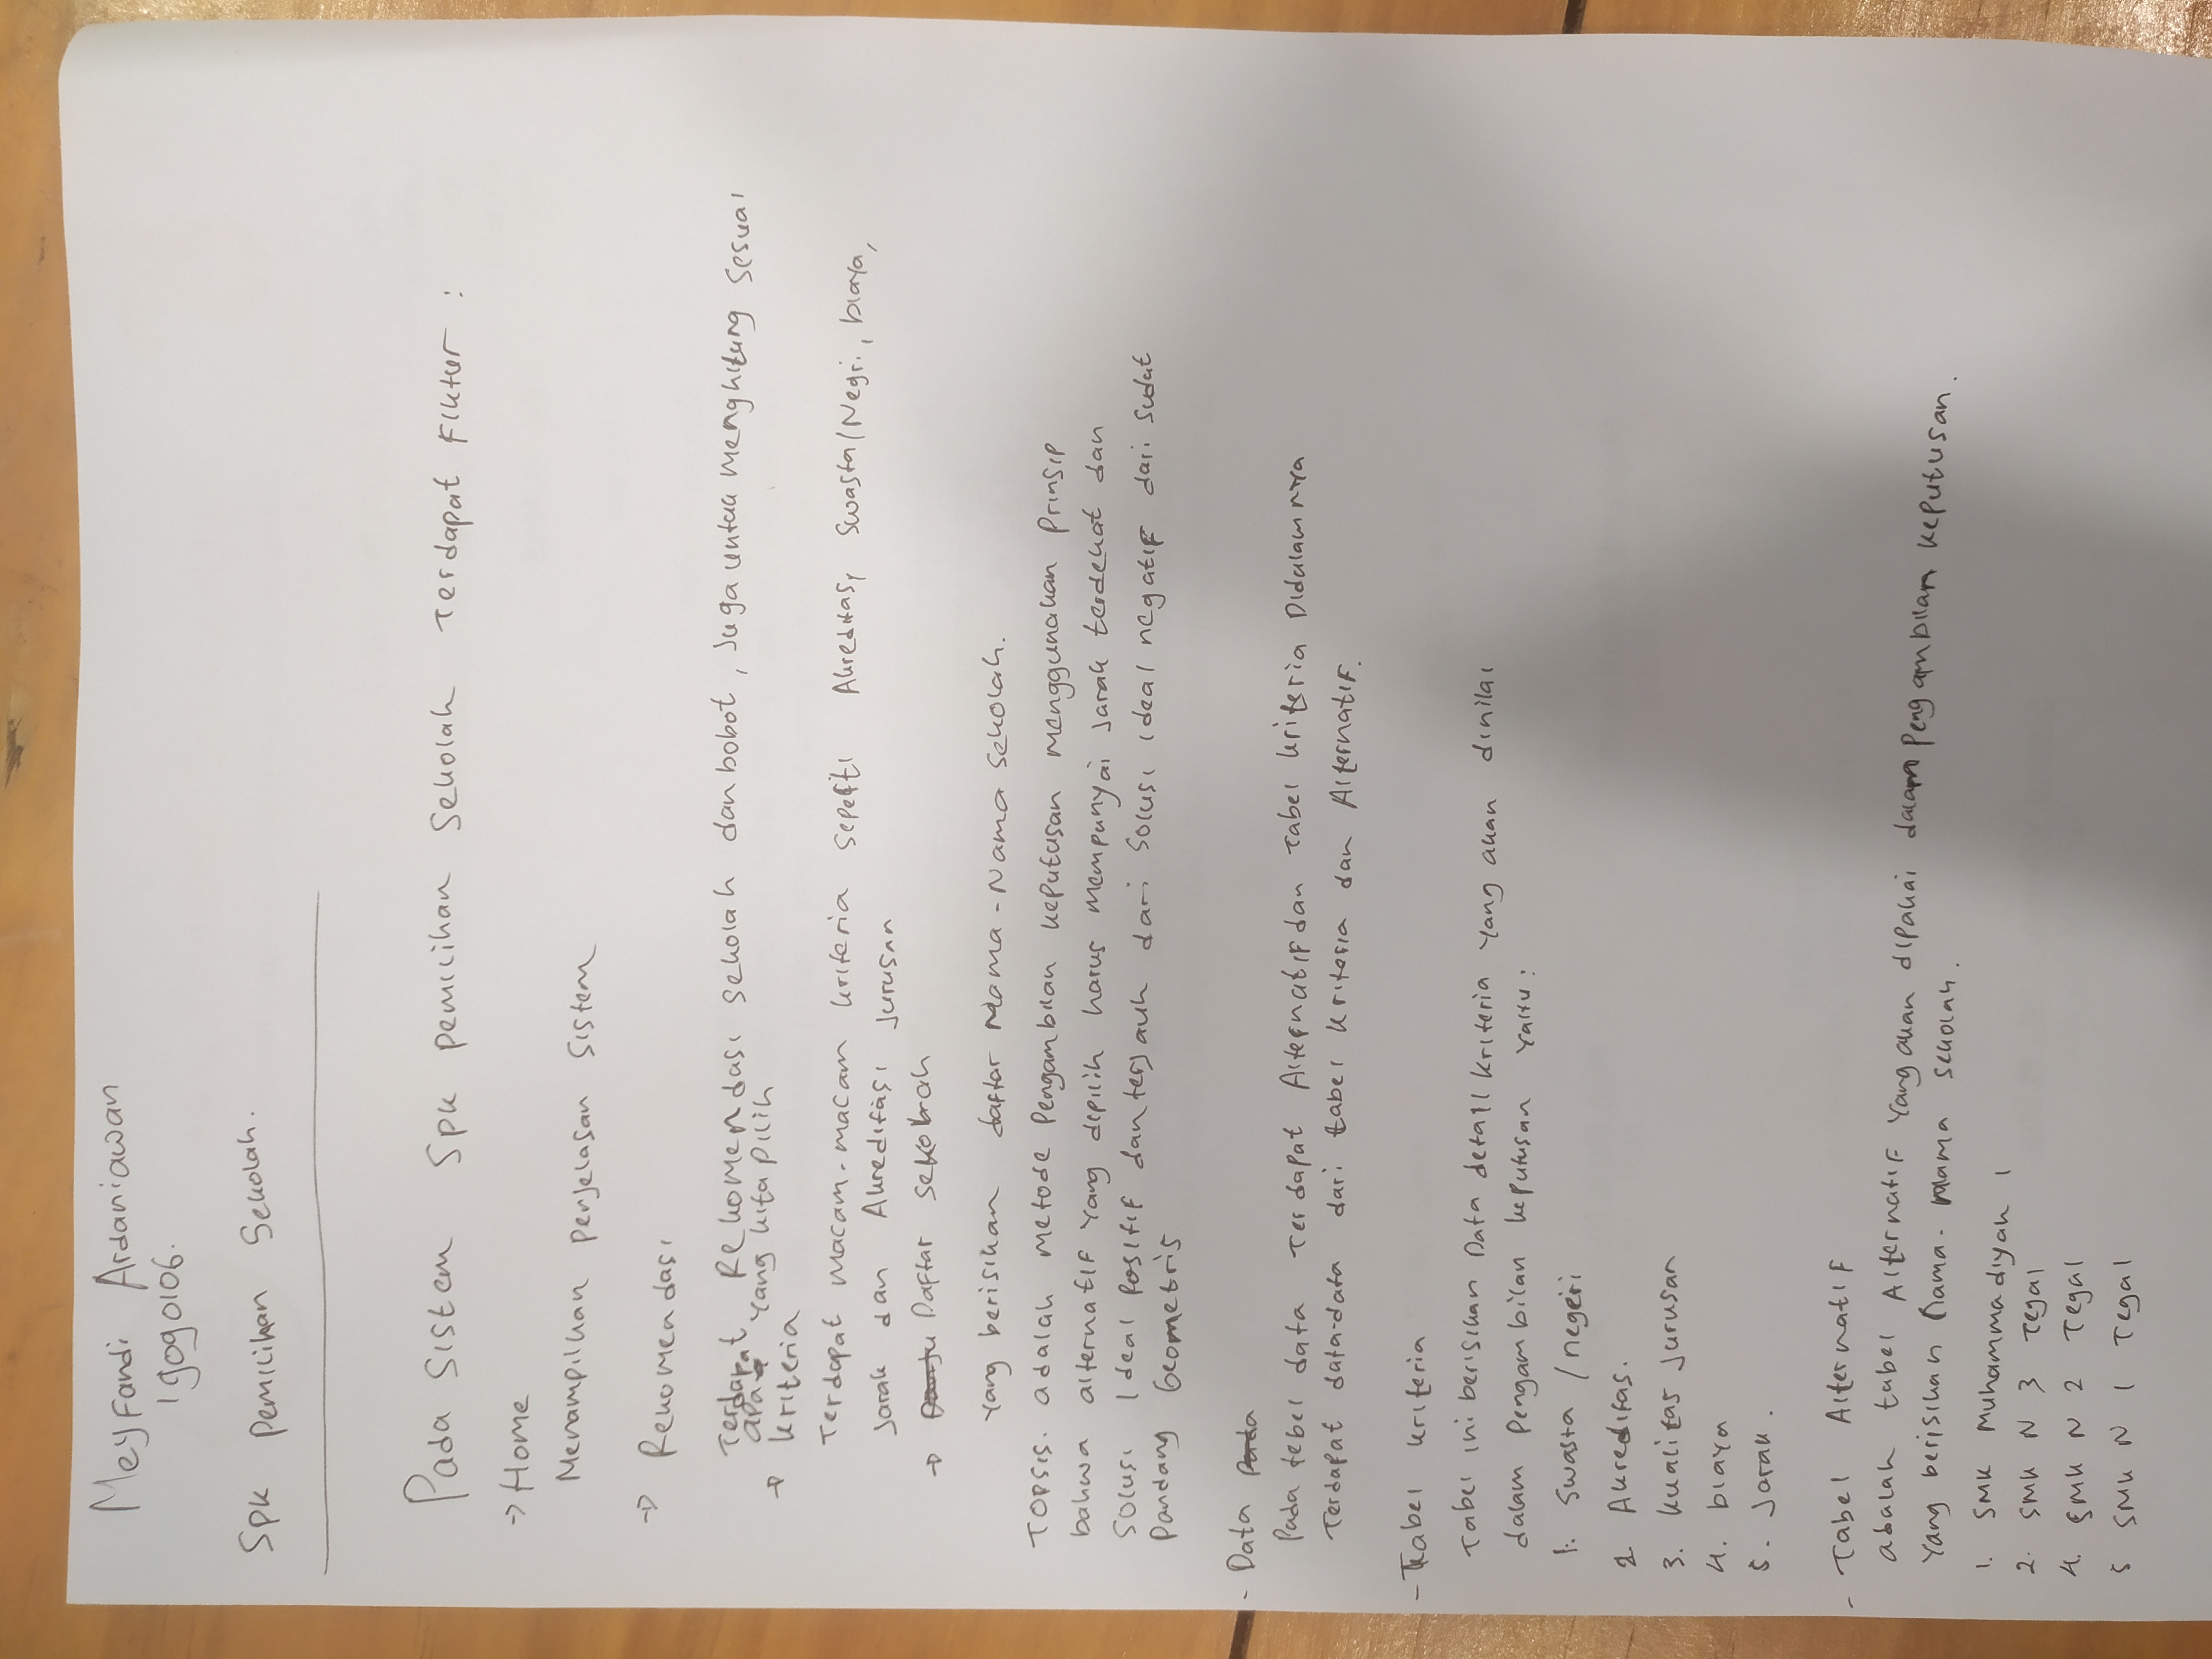 Meyfandi Ardaniawan
19090106.
Spk Pemilihan Sekolah.
Pada Sistem Spk pemilihan Sekolah Terdapat Fiktur :
→ Home
Menampilkan penjelasan sistem
→ Rekomendasi
Terdapat Rekomendasi sekolah dan bobot, Juga untuk menghitung sesuai
apa yang kita pilih
→ kriteria
Terdapat macam-macam kriteria seperti Akreditasi, Swasta/Negri, biaya,
Jarak dan Akreditasi Jurusan
→ Daftar sekolah
Yang berisikan daftar Nama-Nama sekolah.
TOPSIS. adalah metode Pengambilan keputusan menggunakan Prinsip
bahwa alternatif Yang dipilih harus mempunyai Jarak terdekat dan
Solusi Ideal Positif dan terjauh dari Solusi ideal negatif dari sudut
Pandang Geometris
- Data
Pada tebel data Terdapat Alternatif dan Tabel kriteria Didalamnya
Terdapat data-data dari tabel Kriteria dan Alternatif.
- Tabel kriteria
Tabel ini berisikan Data detail kriteria Yang akan dinilai
dalam Pengambilan keputusan Yaitu :
1. Swasta / negeri
2. Akreditas.
3. kualitas Jurusan
4. biaya
5. Jarak.
- Tabel Alternatif
adalah tabel Alternatif Yang akan dipakai dalam pengambilan keputusan.
Yang berisikan nama-nama sekolah.
1. SMK Muhammadiyah 1
2. SMK N 3 Tegal
4. SMK N 2 Tegal
5 SMK N 1 Tegal